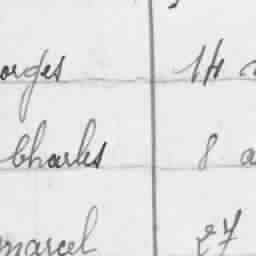 orges 14
Charles 8 a
marcel 27